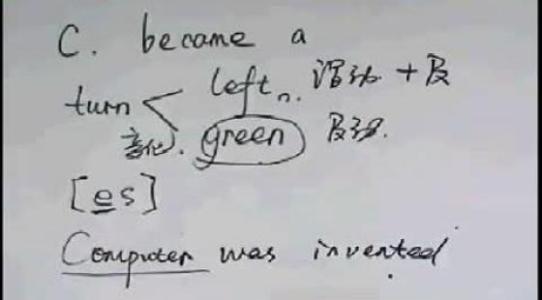 C. become a
turn left n. 谓动 + 及
变化. green 及动.
[es]
Computer was invented